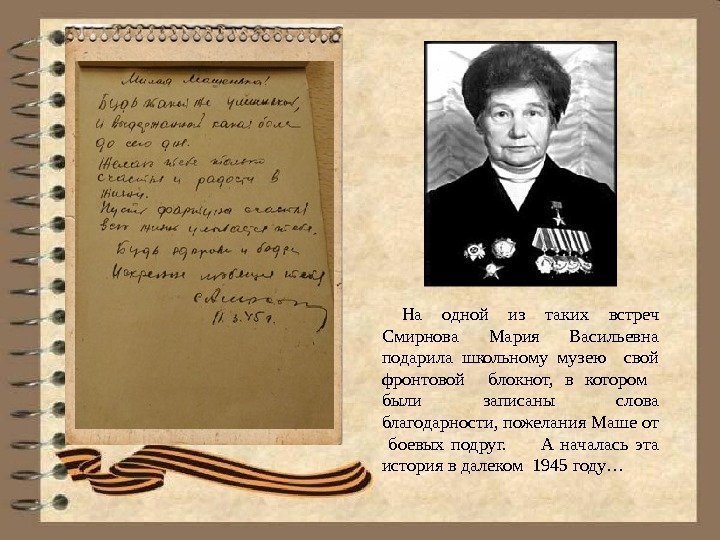 Милая Машенька!
Будь такой же умненькой,
и выдержанной какой была
до сего дня.
Желаю тебе только
счастья и радости в
жизни.
Пусть фортуна счастья
всю жизнь улыбается тебе.
Будь здорова и бодра
Искренне любящая тебя
11.3.45г.
На одной из таких встреч
Смирнова Мария Васильевна
подарила школьному музею свой
фронтовой блокнот, в котором
были записаны слова
благодарности, пожелания Маше от
боевых подруг. А началась эта
история в далеком 1945 году…